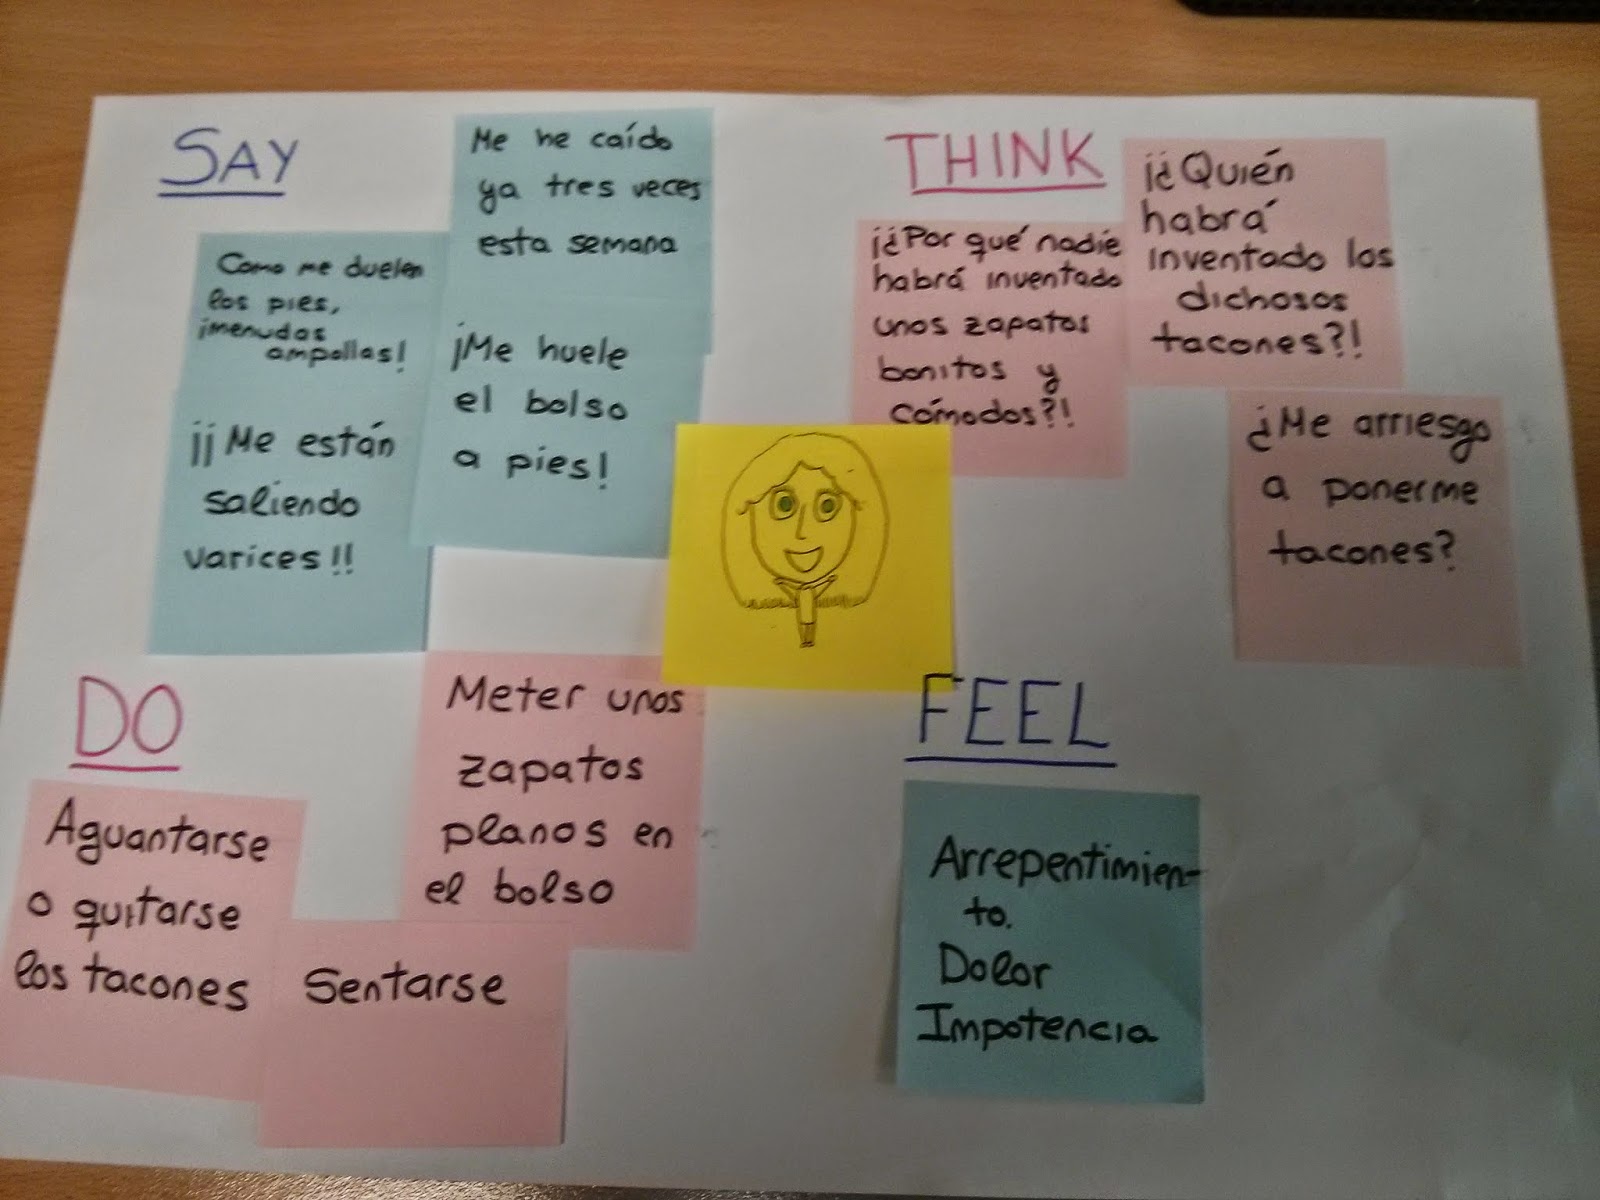 SAY
Me he caído
ya tres veces
esta semana
Como me duelen
los pies,
¡menudas
ampollas!
¡Me huele
el bolso
a pies!
¡¡Me están
saliendo
varices!!
THINK
¡¿Quién
habrá
inventado los
dichosos
tacones?!
¡¿Por qué nadie
habrá inventado
unos zapatos
bonitos y
cómodos?!
¿Me arriesgo
a ponerme
tacones?
DO
Meter unos
zapatos
planos en
el bolso
Aguantarse
o quitarse
los tacones
Sentarse
FEEL
Arrepentimien-
to.
Dolor
Impotencia